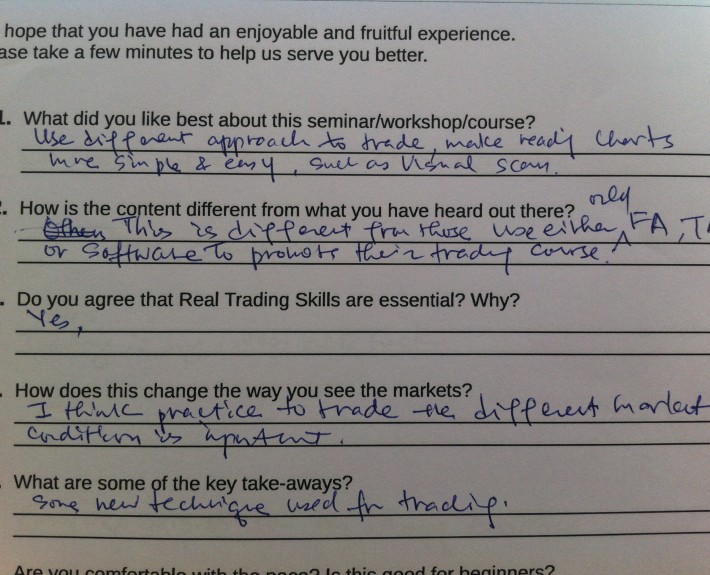 hope that you have had an enjoyable and fruitful experience.
ase take a few minutes to help us serve you better.
1. What did you like best about this seminar/workshop/course?
Use different approach to trade, make ready charts
more simple & easy, such as Visual scan.
2. How is the content different from what you have heard out there?
only
This is different from those use either FA, T
or software to promote their trading course.
. Do you agree that Real Trading Skills are essential? Why?
Yes,
. How does this change the way you see the markets?
I think practice to trade different market
condition is important.
What are some of the key take-aways?
Some new technique used for trading.
Are you comfortable with the pace? Is this good for beginners?